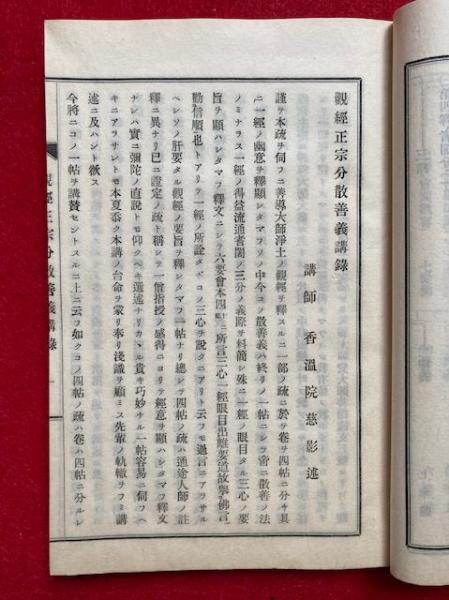 観經正宗分散善義講錄
講師 香溫院慈影述
謹テ本疏ヲ伺フニ善導大師淨土ノ觀經ヲ釋スルニ一部ノ疏ニ於テ卷ヲ四帖ニ分ヶ具
ニ一經ノ幽意ヲ釋顯シタマフソノ中今コノ散善義ハ終リノ一帖ニシテ當散善ノ法
ノミナラス一經ノ得益流通耆闍ノ三分ノ義際ヲ料簡シ殊ニ一經ノ眼目タル三心ノ要
旨ヲ顯ハシタマフ釋文ニシテ六要會本四ニ所言三心一經眼目出離要道故擧佛言
勸信順也トアリテ一經ノ所詮タヾコノ三心ヲ說クニアリト云フモ過言ニアラサル
ヘシソノ肝要タル觀經ノ要旨ヲ釋シタマフ一帖ナリ總シテ四帖ノ疏ハ通途人師ノ註
釋ニ異ナリ已ニ證定ノ疏ト稱シテ一僧指授ノ感得ニヨリテ經意ヲ顯ハシタマフ釋文
ナレハ實ニ彌陀ノ直說トモ仰クヘキ選述ナリカヽル貴キ巧妙ナル一帖容易ニ伺フヘ
キニアラサレトモ本夏忝ク本講ノ台命ヲ蒙リ奉リ淺識ヲ顧ミス先輩ノ軌轍ヲフミ講
述ニ及ハント欲ス
今將ニコノ一帖ヲ講賛セントスルニ上ニ云フ如クコノ四帖ノ疏ハ卷ハ四帖ニ分ルレ
觀經正宗分散善義講錄 一